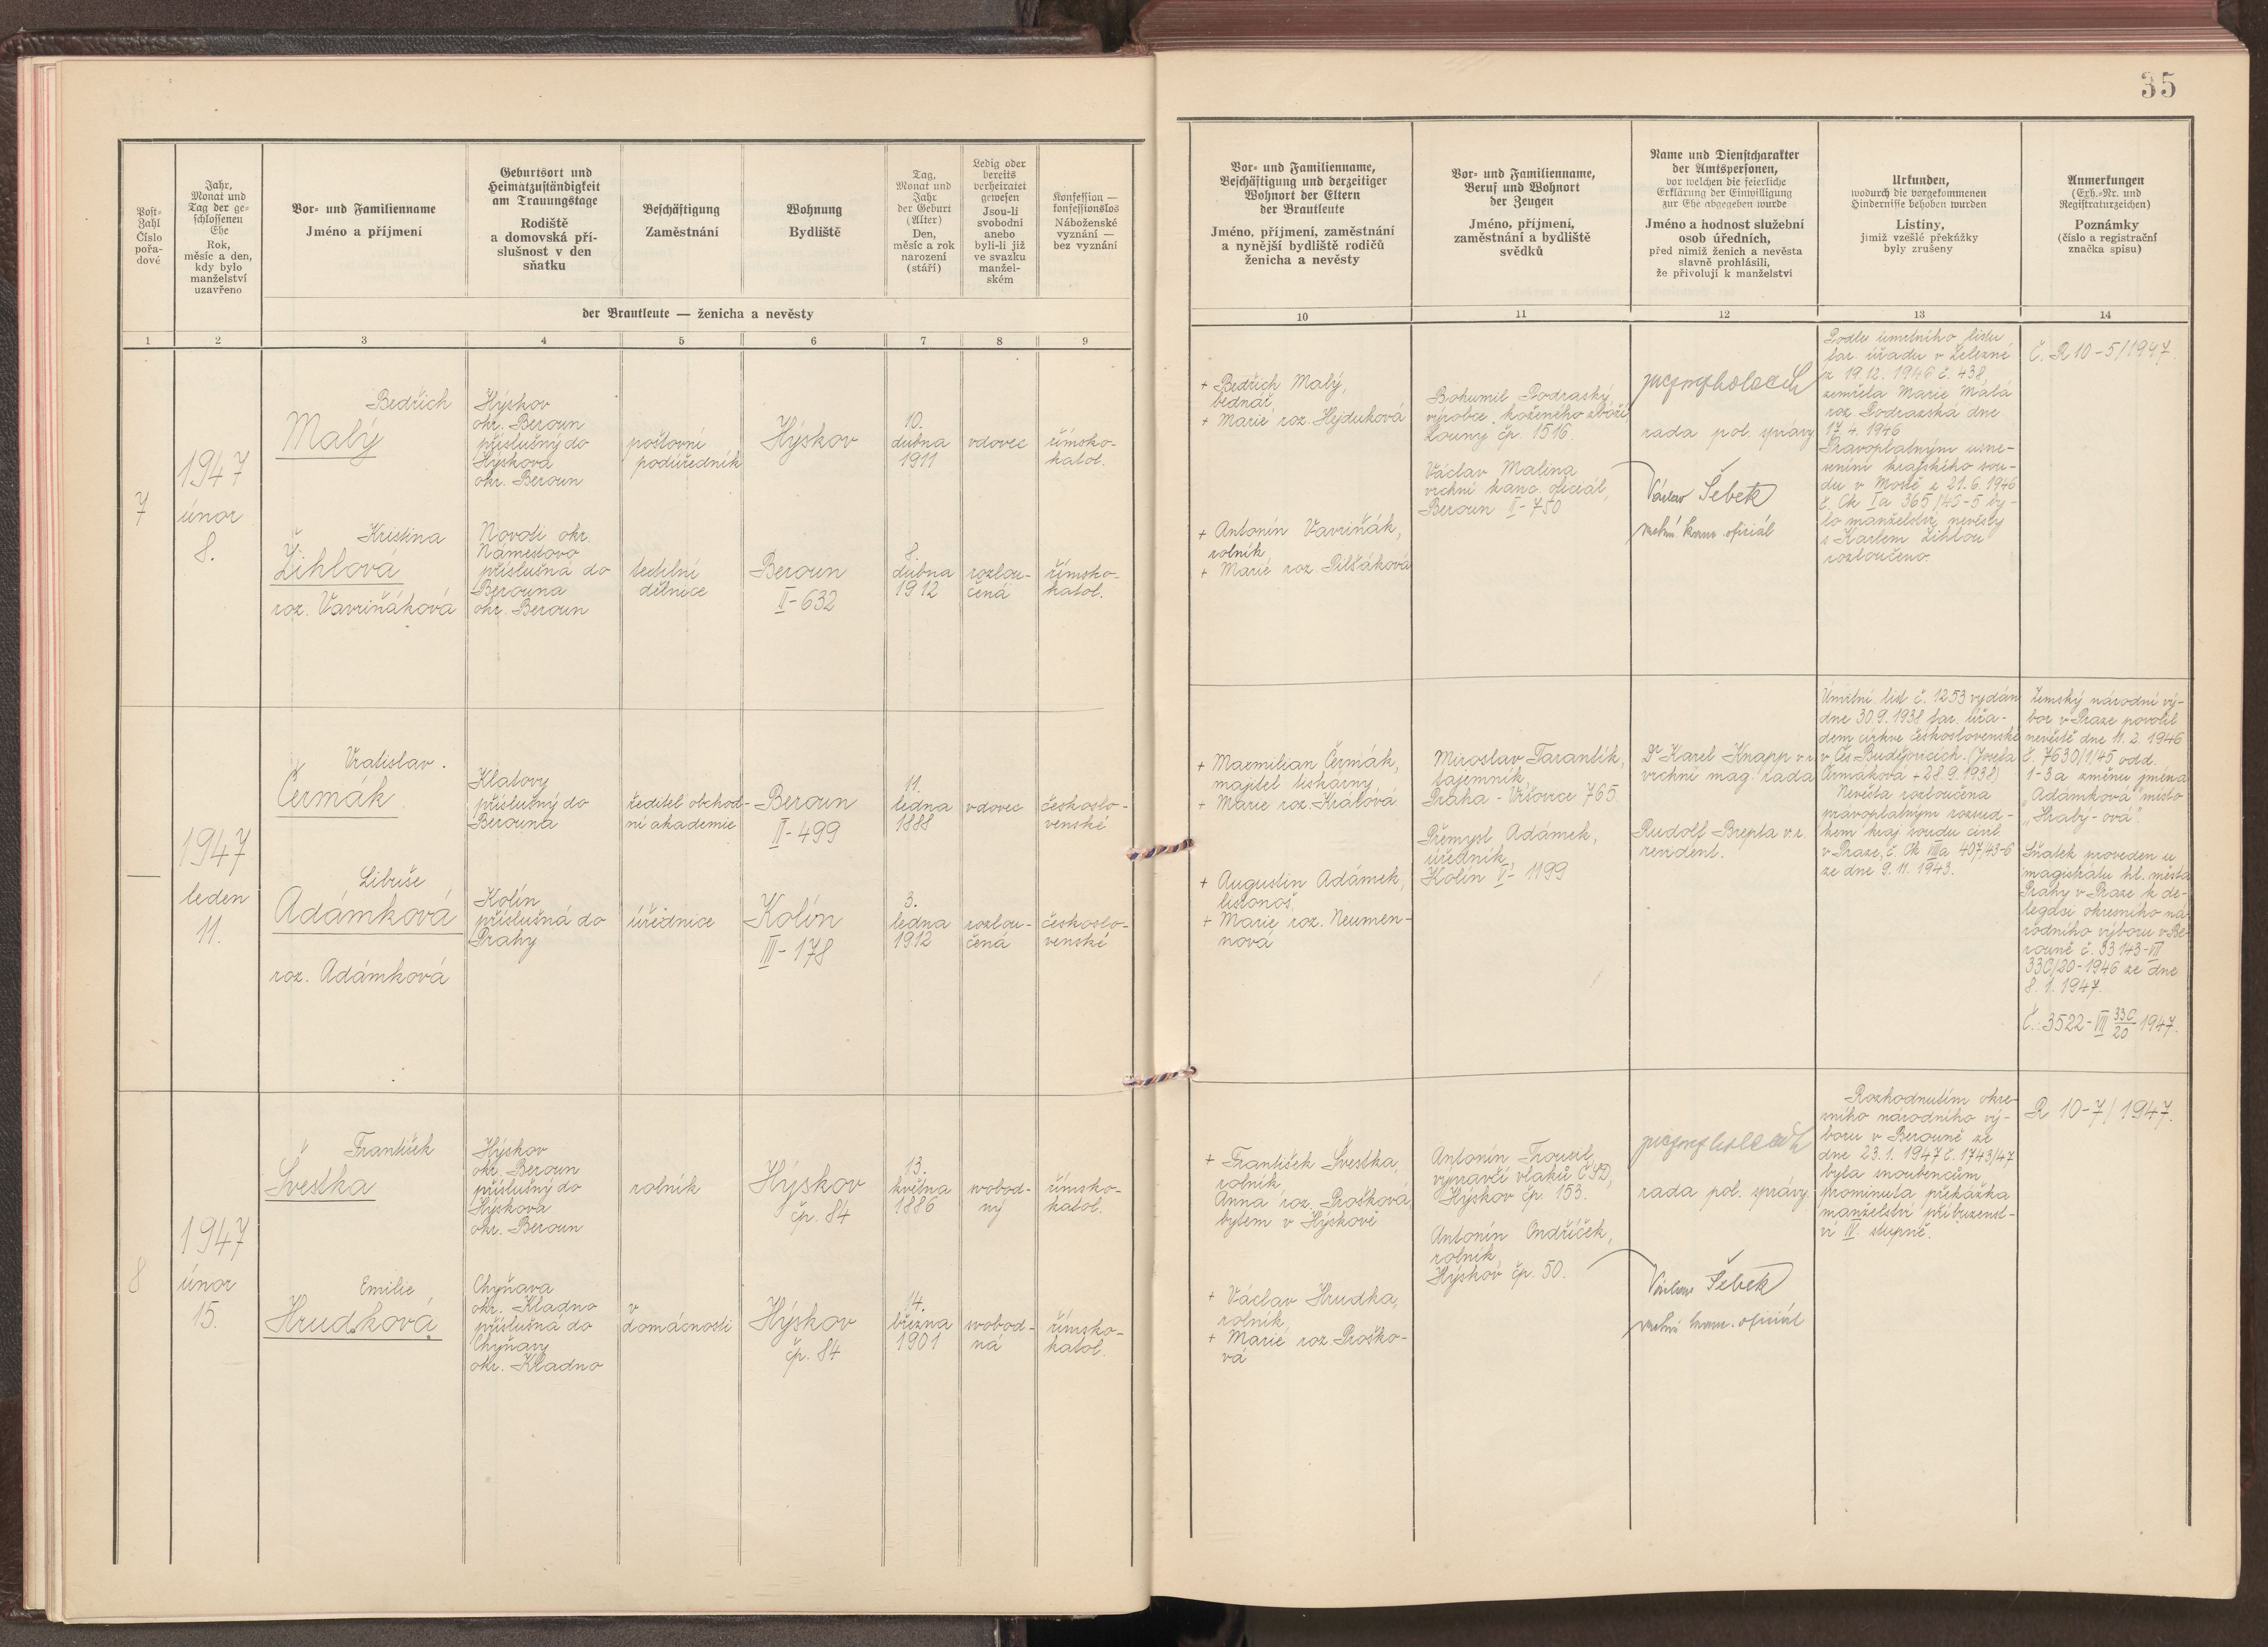 35
Post-
Zahl
Číslo
pořa-
dové
Jahr,
Monat und
Tag der ge-
schlossenen
Ehe
Rok,
měsíc a den,
kdy bylo
manželství
uzavřeno
Vor- und Familienname
Jméno a příjmení
Geburtsort und
Heimatzuständigkeit
am Trauungstage
Rodiště
a domovská pří-
slušnost v den
sňatku
Beschäftigung
Zaměstnání
Wohnung
Bydliště
Tag,
Monat und
Jahr
der Geburt
(Alter)
Den,
měsíc a rok
narození
(stáří)
Ledig oder
bereits
verheiratet
gewesen
Jsou-li
svobodni
anebo
byli-li již
ve svazku
manžel-
ském
Konfession —
konfessionslos
Náboženské
vyznání —
bez vyznání
der Brautleute — ženicha a nevěsty
Vor- und Familienname,
Beschäftigung und derzeitiger
Wohnort der Eltern
der Brautleute
Jméno, příjmení, zaměstnání
a nynější bydliště rodičů
ženicha a nevěsty
Vor- und Familienname,
Beruf und Wohnort
der Zeugen
Jméno, příjmení,
zaměstnání a bydliště
svědků
Name und Dienstcharakter
der Amtspersonen,
vor welchen die feierliche
Erklärung der Einwilligung
zur Ehe abgegeben wurde
Jméno a hodnost služební
osob úředních,
před nimiž ženich a nevěsta
slavně prohlásili,
že přivolují k manželství
Urkunden,
wodurch die vorgekommenen
Hindernisse behoben wurden
Listiny,
jimiž vzešlé překážky
byly zrušeny
Anmerkungen
(Exh.-Nr. und
Registraturzeichen)
Poznámky
(číslo a registrační
značka spisu)
1 2 3 4 5 6 7 8 9 10 11 12 13 14
7
1947
únor
8.
Bedřich
Malý
Hýskov
okr. Beroun
příslušný do
Hýskova
okr. Beroun
poštovní
podúředník
Hýskov
10.
dubna
1911
vdovec
římsko-
katol.
Kristina
Žihlová
roz. Vavriňáková
Novoti okr.
Námestovo
příslušná do
Berouna
okr. Beroun
textilní
dělnice
Beroun
II-632
8.
dubna
1912
rozlou-
čená
římsko-
katol.
+ Bedřich Malý,
bednář
+ Marie roz. Hejduková
+ Antonín Vavriňák,
rolník
+ Marie roz. Pilšáková
Bohumil Podraský,
výrobce koženého zboží,
Louny čp. 1516.
Václav Malina
vrchní kanc. oficiál,
Beroun II-750
rada pol. správy
Václav Šebek
vrchní kanc. oficiál
Podle úmrtního listu
far. úřadu v Železné
z 19.12.1946 č. 438,
zemřela Marie Malá
roz. Podrazská dne
17.4.1946
Pravoplatným usne-
sením krajského sou-
du v Mostě z 21.6.1946
č. Ck Ia 365/46-5 by-
lo manželství nevěsty
s Karlem Žihlou
rozloučeno.
Č. R 10-5/1947.
1947
leden
11.
Vratislav
Čermák
Klatovy
příslušný do
Berouna
ředitel obchod-
ní akademie
Beroun
II-499
11.
ledna
1888
vdovec
českoslo-
venské
Libuše
Adámková
roz. Adámková
Kolín
příslušná do
Prahy
úřednice
Kolín
III-178
3.
ledna
1912
rozlou-
čená
českoslo-
venské
+ Maxmilian Čermák,
majitel tiskárny
+ Marie roz. Králová
+ Augustin Adámek,
listonoš
+ Marie roz. Neumen-
nová
Miroslav Tarantík,
tajemník,
Praha - Vršovice 765.
Přemysl Adámek,
úředník,
Kolín V- 1199
Dr Karel Knapp v.r.
vrchní mag. rada
Rudolf Brepta v.r.
revident.
Úmrtní list č. 1253 vydán
dne 30.9.1938 far. úřa-
dem církve československé
v Čes. Budějovicích. (Josefa
Čermáková +28.9.1938)
Nevěsta rozloučena
právoplatným rozsud-
kem kraj. soudu civil.
v Praze, č. Ck VIIIa 407/43-6
ze dne 9.11.1943.
Zemský národní vý-
bor v Praze povolil
nevěstě dne 11.2.1946
č. 7630/1/45 odd.
1-3a změnu jména
„Adámková" místo
„Hraby-ová".
Sňatek proveden u
magistrátu hl. města
Prahy v Praze k de-
legaci okresního ná-
rodního výboru v Be-
rouně č. 33143-VII
330/20-1946 ze dne
8.1.1947.
Č.: 3522-VII 330/20 1947.
8
1947
únor
15.
František
Švestka
Hýskov
okr. Beroun
příslušný do
Hýskova
okr. Beroun
rolník
Hýskov
čp. 84
13.
května
1886
svobod-
ný
římsko-
katol.
Emilie
Hrudková
Chyňava
okr. Kladno
příslušná do
Chyňavy
okr. Kladno
v
domácnosti
Hýskov
čp. 84
14.
března
1901
svobod-
ná
římsko-
katol.
+ František Švestka,
rolník
Anna roz. Prošková
bytem v Hýskově
+ Václav Hrudka,
rolník,
+ Marie roz. Proško-
vá
Antonín Trousil,
výpravčí vlaků ČSD,
Hýskov čp. 153.
Antonín Ondříček,
rolník
Hýskov čp. 50.
rada pol. správy
Václav Šebek
vrchní kanc. oficiál
Rozhodnutím okre-
sního národního vý-
boru v Berouně ze
dne 23.1.1947 č. 1743/47
byla snoubencům
prominuta překážka
manželství příbuzenst-
ví IV. stupně.
R 10-7/1947.